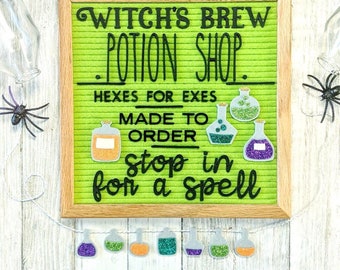 WITCH'S BREW
.POTION SHOP.
HEXES FOR EXES
MADE TO
ORDER
stop in
for a spell